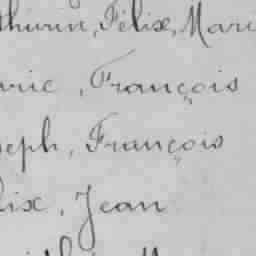 thurin, Félix, Mari
arie, François
seph, François
lix, Jean